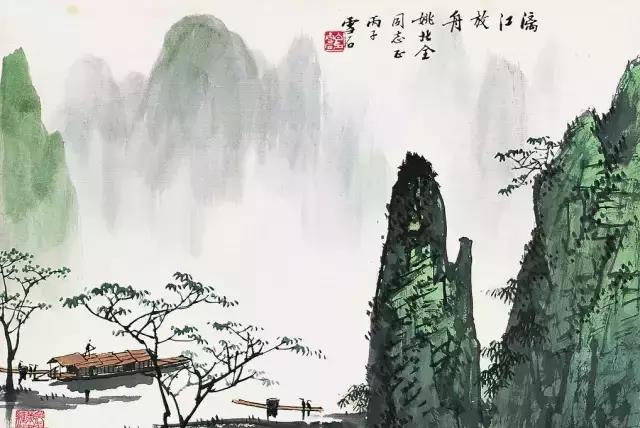 漓江放舟
姚北全
同志正
丙子
雪石